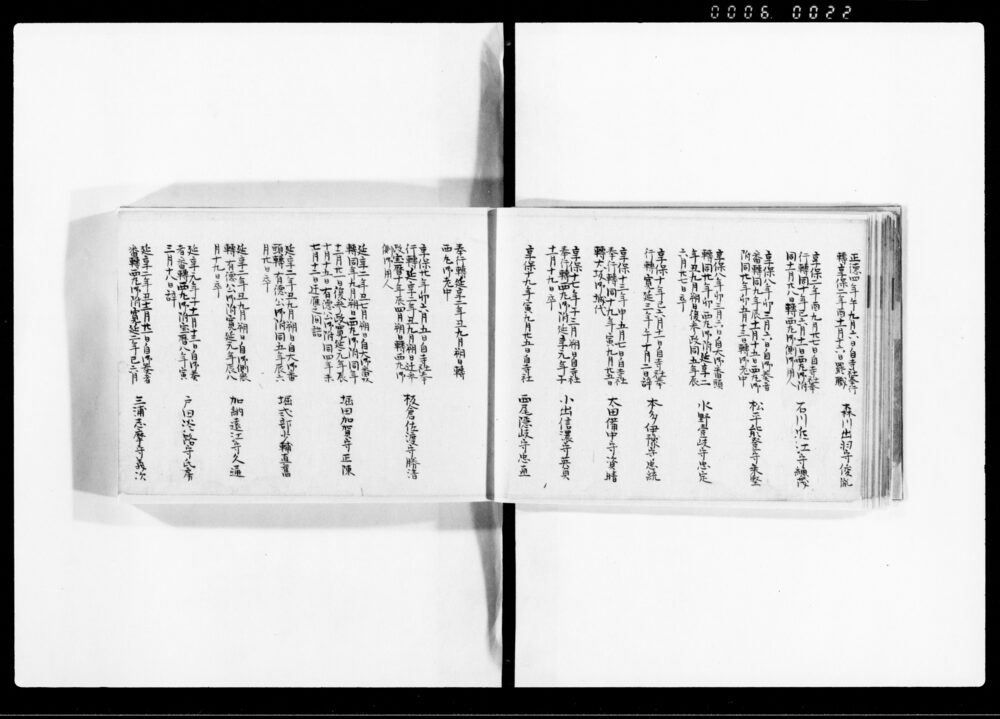 0006 0022
正徳四年午九月六日自寺社奉行
轉享保二年酉十月十六日罷職
森川出羽守俊胤
享保二年酉九月廿七日自寺社奉
行轉同十年巳六月十一日西丸御附
同十一月廿八日轉西丸御側御用人
石川近江守總茂
享保八年卯三月六日自御奏者
番轉同九年辰十一月十五日西丸御
附同廿年卯五月十三日轉御老中
松平能登守乗堅
享保八年卯三月六日自大御番頭
轉同廿年卯西丸御附延享二
年丑九月朔日復本政同五年辰
六月廿七日卒
水野壹岐守忠定
享保十年巳六月十一日自寺社奉
行轉寛延三年午十月十二日辞
本多伊豫守忠統
享保十三年申五月七日自寺社
奉行轉同十九年寅九月廿五日
轉大坂御城代
太田備中守資晴
享保十七年子三月朔日自寺社
奉行轉西丸御附延享元年子
十一月十九日卒
小出信濃守英貞
享保十九年寅九月廿五日自寺社
西尾隠岐守忠直
奉行轉延享二年丑九月朔日轉
西丸御老中
享保廿年卯六月五日自寺社奉
行轉延享二年丑九月朔日辻本
政宝暦十年辰四月朔日轉西丸御
側御用人
板倉佐渡守勝清
延享二年丑七月朔日自大御番頭
轉同年九月朔日西丸御附同年
十二月廿一日復本政寛延元年辰
十月十五日有徳公御附同四年未
七月十二日辻雁之間詰
堀田加賀守正陳
延享二年丑九月朔日自大御番
頭轉有徳公御附同五年辰六
月廿日卒
堀式部少輔直舊
延享二年丑九月朔日自御側衆
轉有徳公御附寛延元年辰八
月十九日卒
加納遠江守久通
延享元年子十一月十三日自御奏
者番轉西丸御附宝暦八年寅
三月十八日辞
戸田淡路守氏房
延享二年丑十一月廿一日自御奏者
番轉西丸御附寛延二年巳六月
三浦志摩守義次